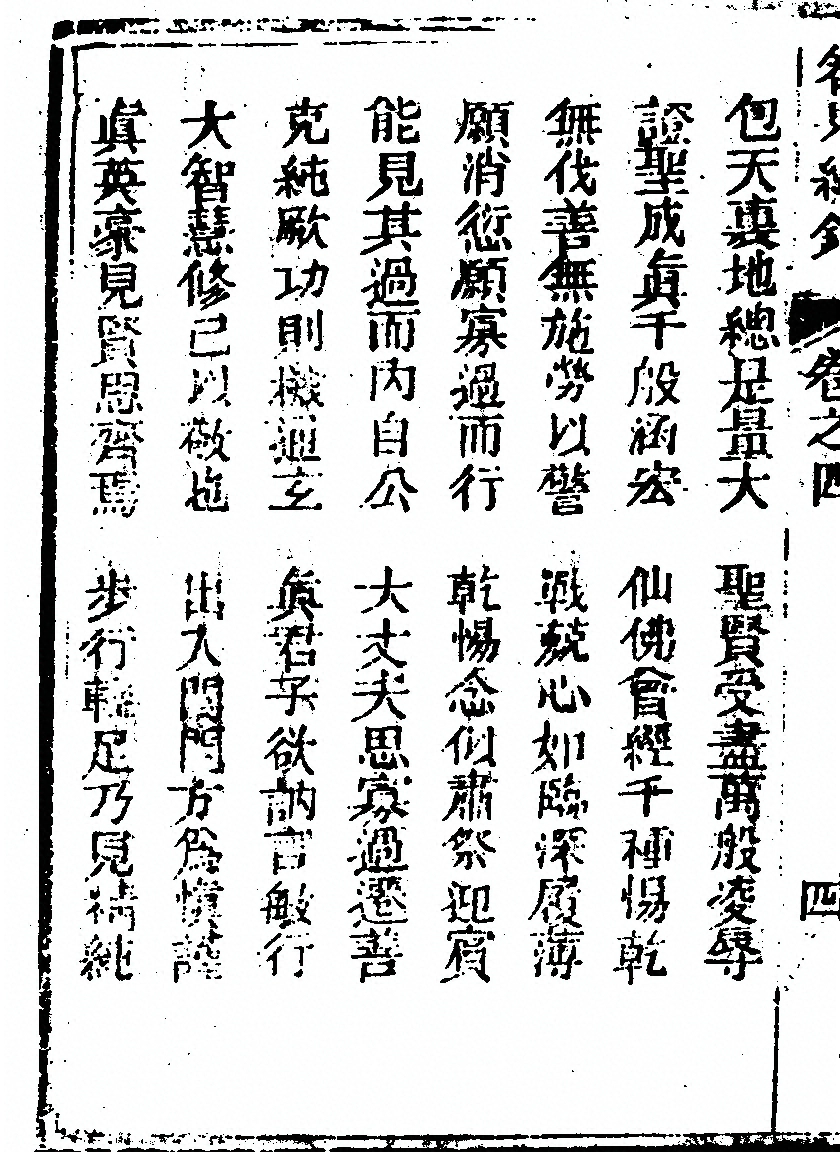 卷之四
四
包天裏地總是量大 聖賢受盡萬般凌辱
證聖成眞千般涵宏 仙佛曾經千種惕乾
無伐善無施勞以警 戰兢心如臨深履薄
願消愆願寡過而行 乾惕念似肅祭迎賓
能見其過而內自公 大丈夫思寡過遷善
克純厥功則機通玄 眞君子欲訥言敏行
大智慧修己以敬也 出入閨門方為慎謹
眞英豪見賢思齊焉 步行輕足乃見精純